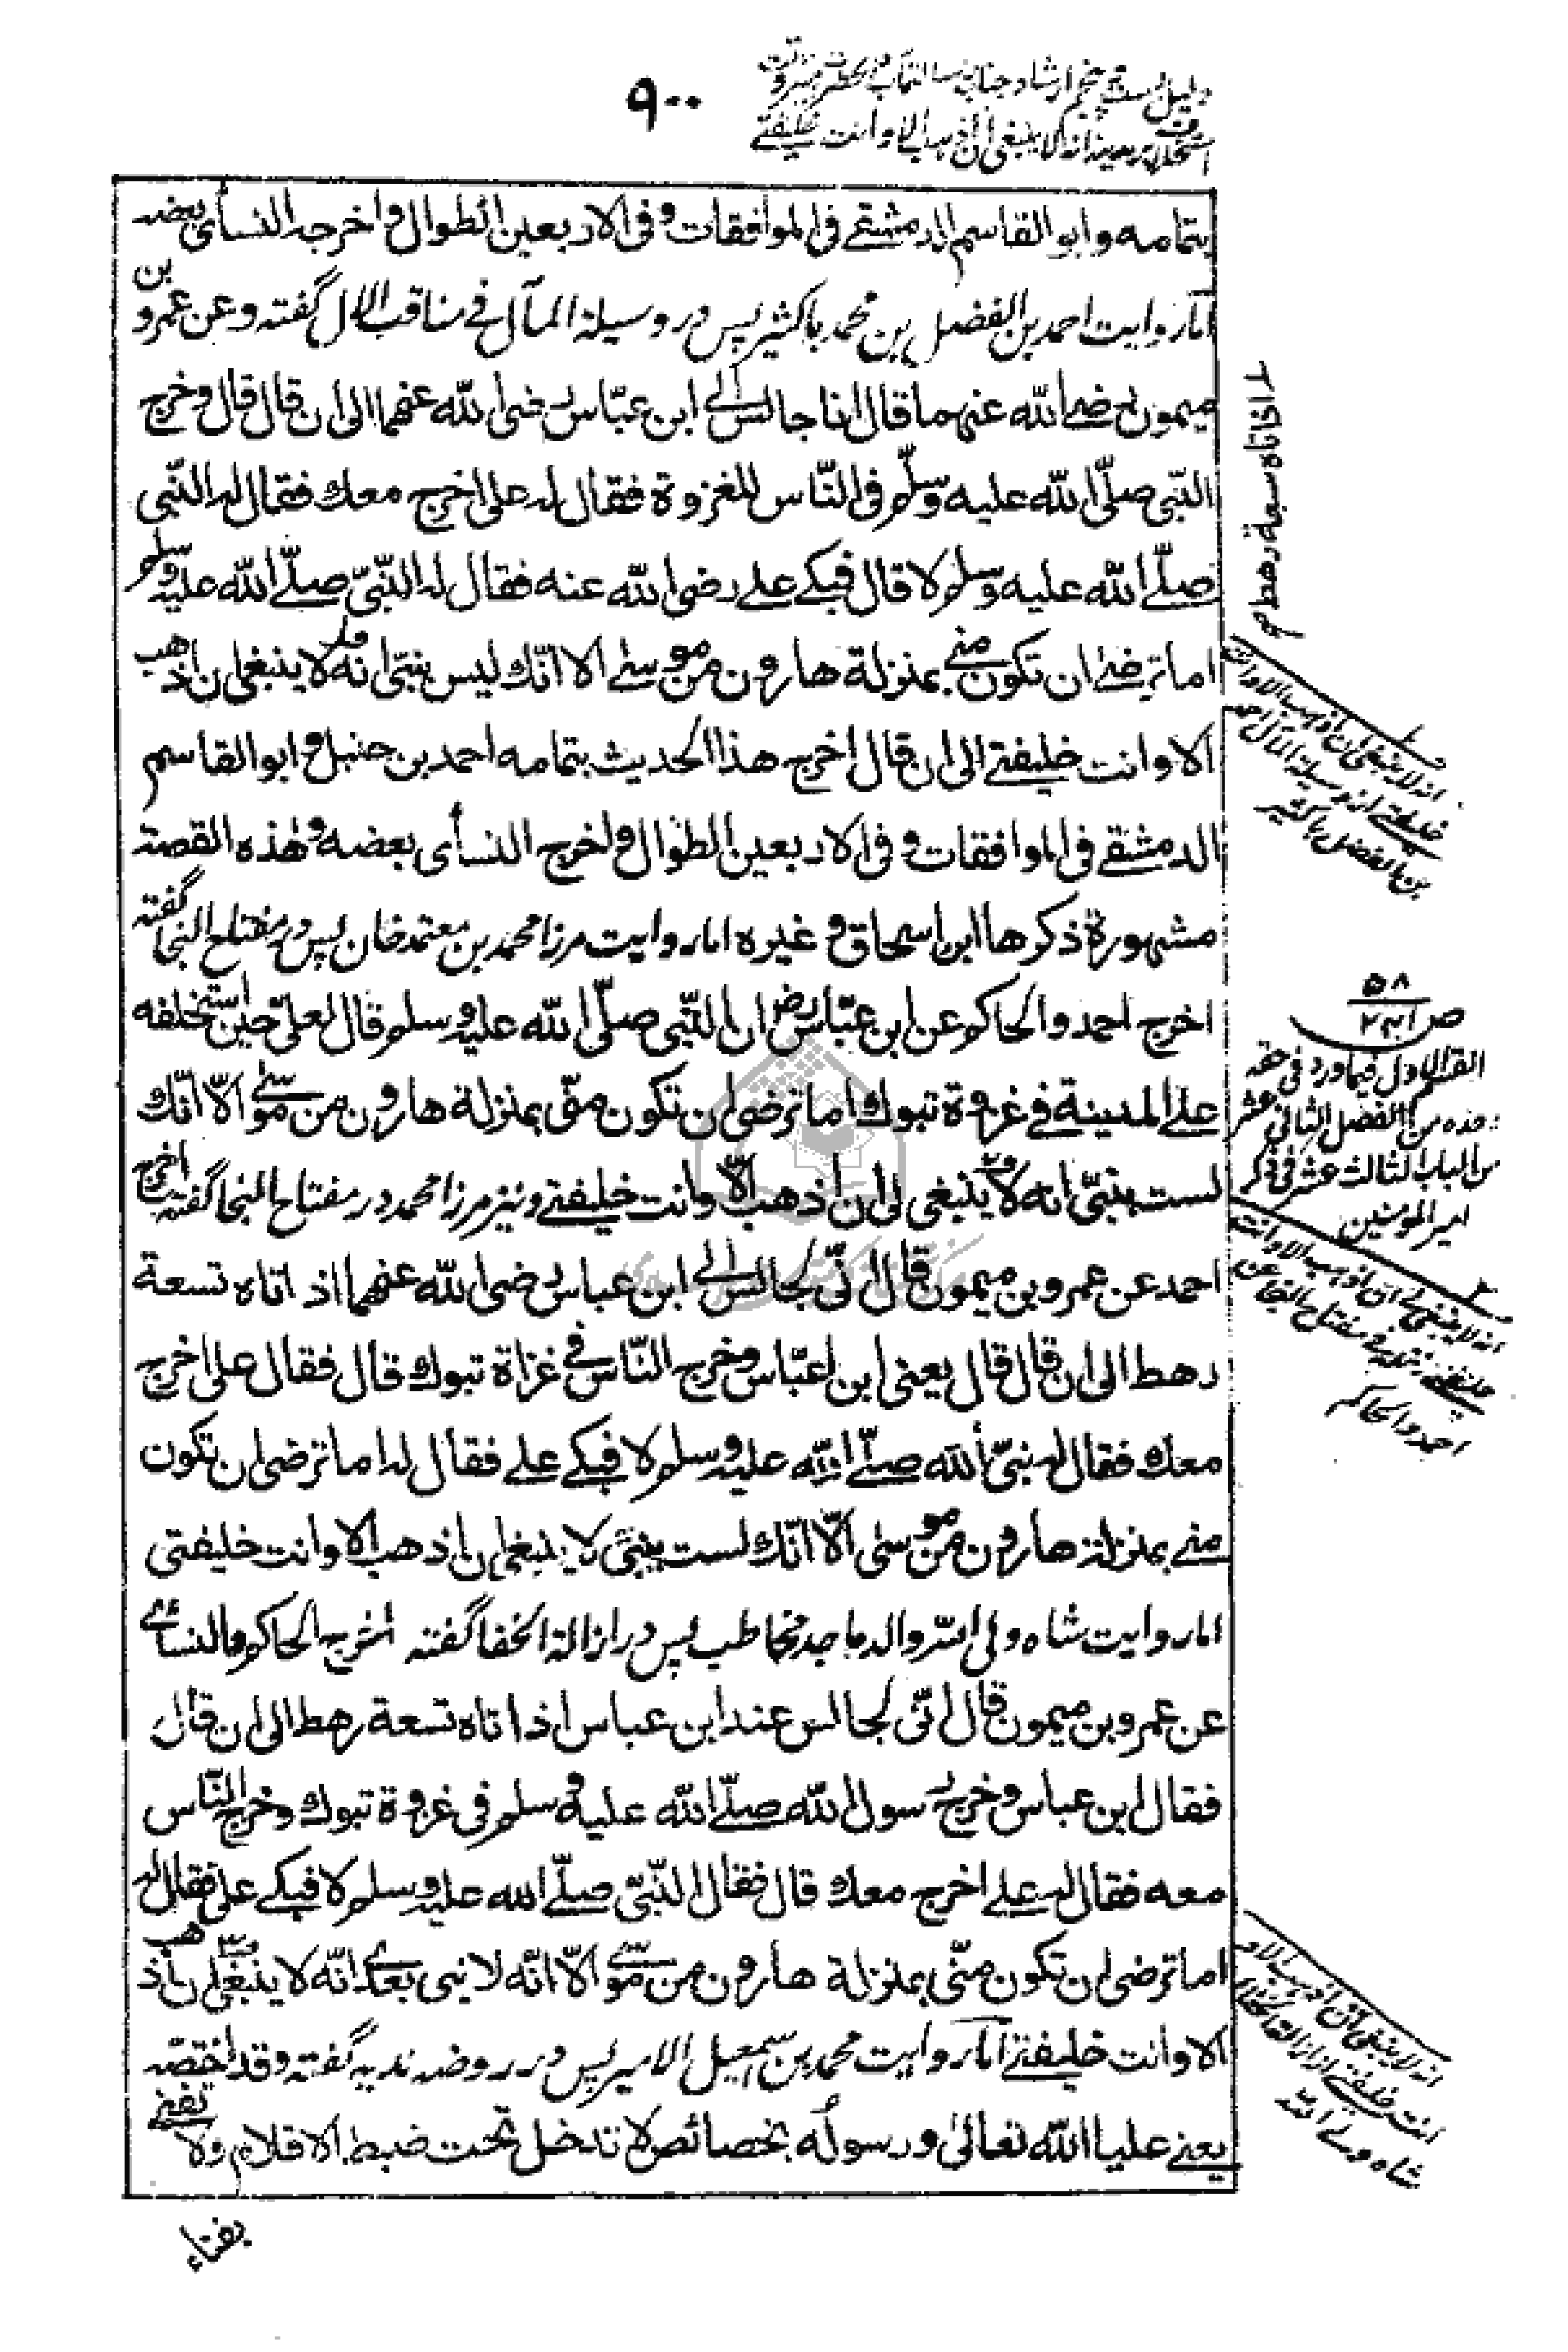 ۹۰۰
دلیل بست و پنجم ارشاد جناب رسالتمآب
استخلاف بر مدینه انه لا ینبغی ان اذهب الا و انت خلیفتی
بتمامه وابو القاسم الدمشقی فی الموافقات وفی الاربعین الطوال واخرجه النسأی بعضه
اما روایت احمد بن الفضل بن محمد باکثیر پس در وسیلة المآل فی مناقب الآل گفته وعن عمرو بن
میمون رضی الله عنهما قال انا جالس الی ابن عباس رضی الله عنهما الی ان قال قال وخرج
النبی صلی الله علیه وسلم فی الناس للغزوة فقال له علی اخرج معك فقال له النبی
صلی الله علیه وسلم لا قال فبکی علی رضی الله عنه فقال له النبی صلی الله علیه وسلم
اما ترضی ان تکون منی بمنزلة هارون من موسی الا انك لیس بنبی انه لا ینبغی ان اذهب
الا وانت خلیفتی الی ان قال اخرج هذا الحدیث بتمامه احمد بن حنبل وابو القاسم
الدمشقی فی الموافقات وفی الاربعین الطوال واخرج النسأی بعضه وهذه القصة
مشهورة ذکرها ابن اسحاق وغیره اما روایت مرزا محمد بن معتمد خان پس در مفتاح النجا گفته
اخرج احمد والحاکم عن ابن عباس رض ان النبی صلی الله علیه وسلم قال لعلی حین استخلفه
علی المدینة فی غزوة تبوك اما ترضی ان تکون منی بمنزلة هارون من موسی الا انك
لست بنبی انه لا ینبغی لی ان اذهب الا وانت خلیفتی ونیز مرزا محمد در مفتاح النجا گفته اخرج
احمد عن عمرو بن میمون قال انی لجالس الی ابن عباس رضی الله عنهما اذ اتاه تسعة
رهط الی ان قال قال یعنی ابن عباس وخرج الناس فی غزاة تبوك قال فقال علی اخرج
معك فقال له نبی الله صلی الله علیه وسلم لا فبکی علی فقال له اما ترضی ان تکون
منی بمنزلة هارون من موسی الا انك لست بنبی لا ینبغی ان اذهب الا وانت خلیفتی
اما روایت شاه ولی الله والد ماجد مخاطب پس در ازالة الخفا گفته اخرج الحاکم والنسائی
عن عمرو بن میمون قال انی لجالس عند ابن عباس اذ اتاه تسعة رهط الی ان قال
فقال ابن عباس وخرج رسول الله صلی الله علیه وسلم فی غزوة تبوك وخرج الناس
معه فقال له علی اخرج معك قال فقال النبی صلی الله علیه وسلم لا فبکی علی فقال له
اما ترضی ان تکون منی بمنزلة هارون من موسی الا انه لا نبی بعدی انه لا ینبغی ان اذهب
الا وانت خلیفتی اما روایت محمد بن اسمعیل الامیر پس در روضه ندیه گفته وقد اختصه
یعنی علیا الله تعالی ورسوله بخصائص لا تدخل تحت ضبط الاقلام ولا تفنی
بفناء
اذ اتاه سبعة رهط
انه لا ینبغی ان اذهب الا وانت
خلیفتی از وسیلة المآل احمد
بن الفضل باکثیر
القسم الاول فیما ورد فی حقه
من الفصل الثانی عشر
من الباب الثالث عشر فی ذکر
امیر المومنین
انه لا ینبغی لی ان اذهب الا وانت
خلیفتی از مفتاح النجا عن
احمد والحاکم
انه لا ینبغی ان اذهب الا و
انت خلیفتی از ازالة الخفا
شاه ولی الله